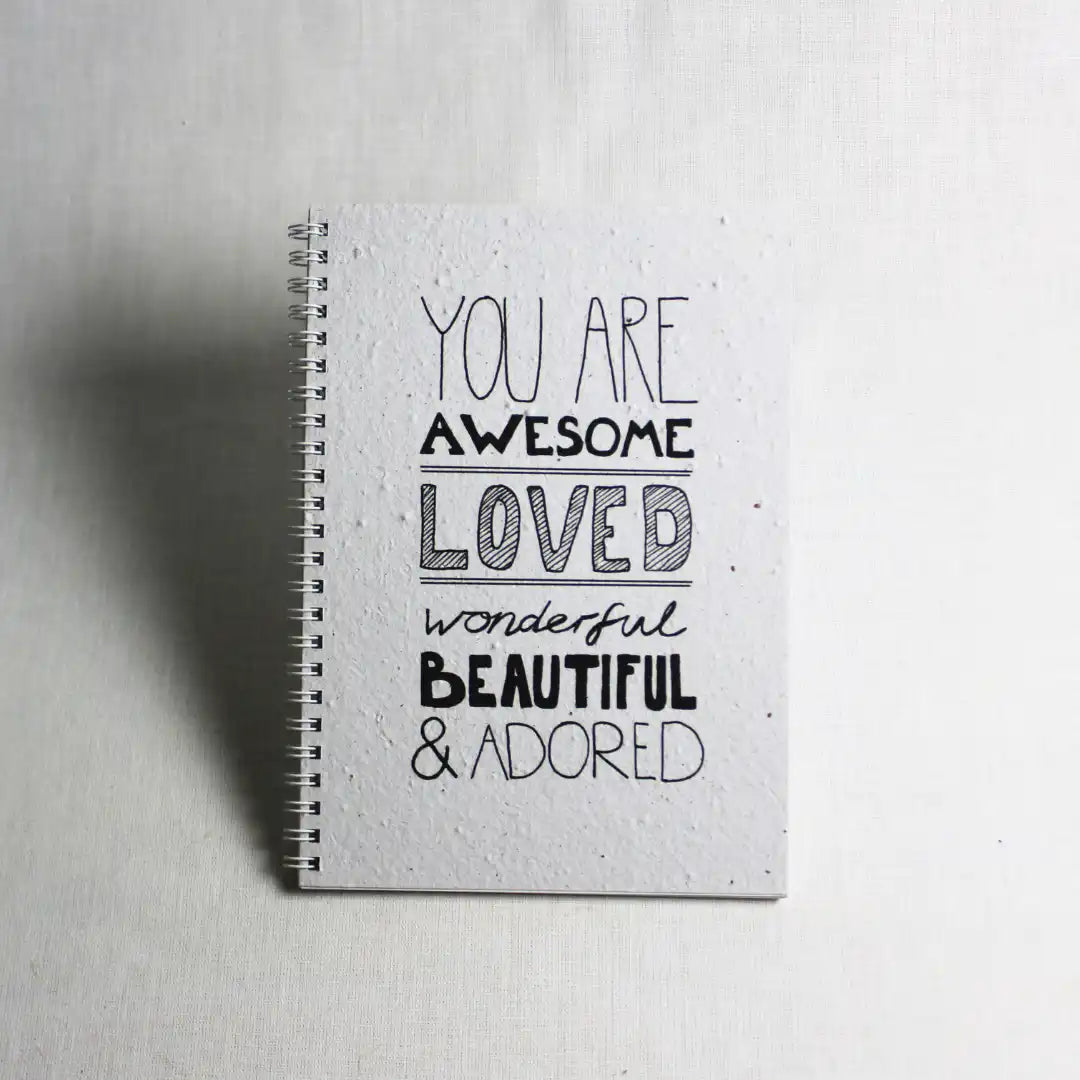 YOU ARE
AWESOME
LOVED
wonderful
BEAUTIFUL
& ADORED